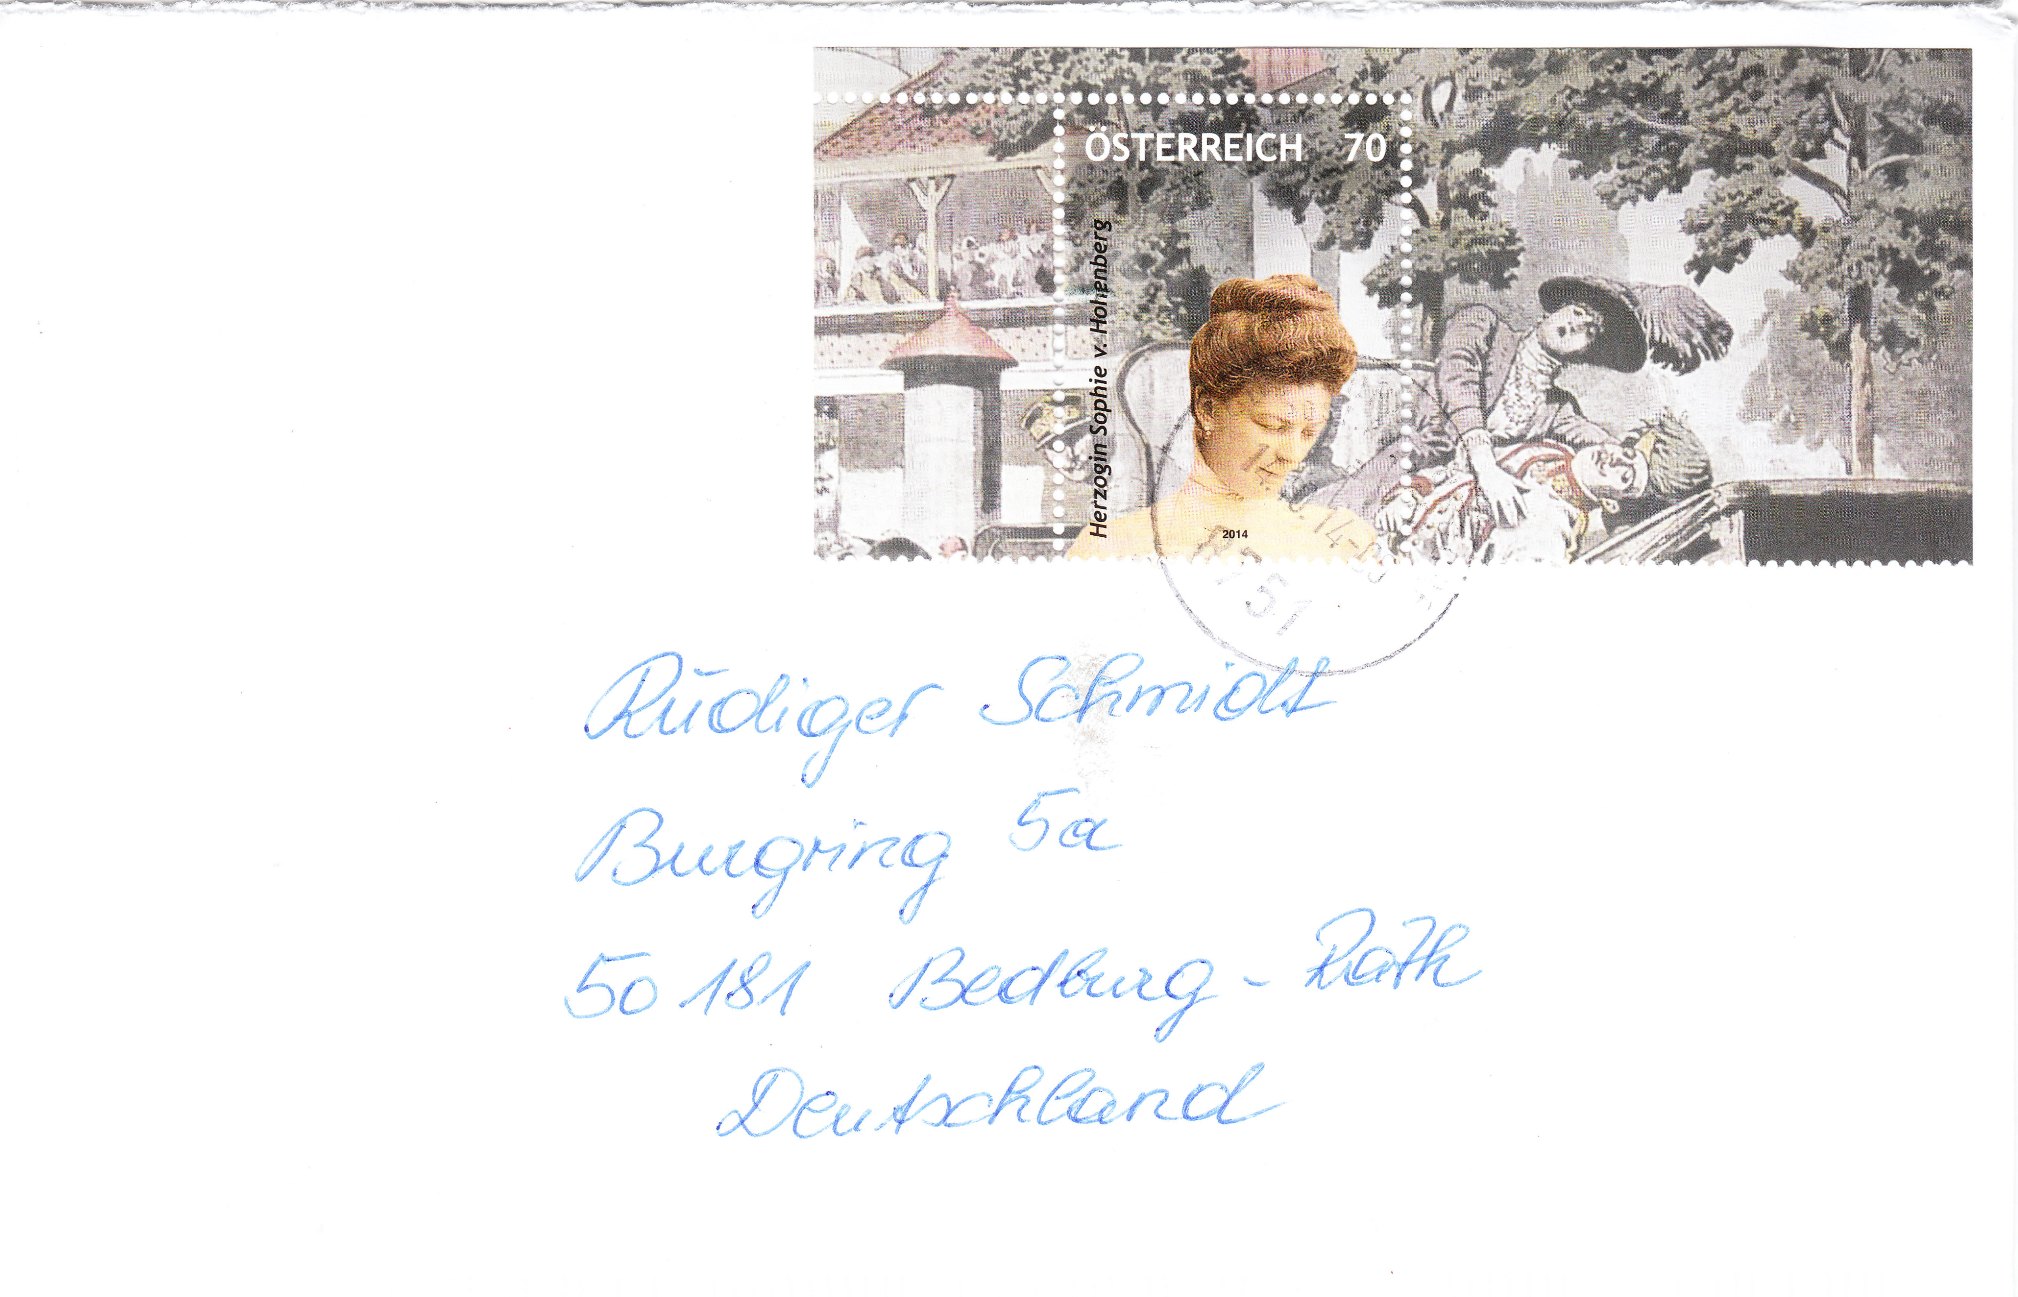 ÖSTERREICH 70
Herzogin Sophie v. Hohenberg
2014
Rüdiger Schmidt
Burgring 5a
50181 Bedburg - Rath
Deutschland